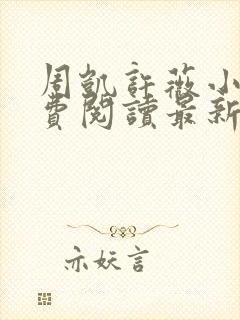 周凱許薇小
費閱讀最新
亦妖言